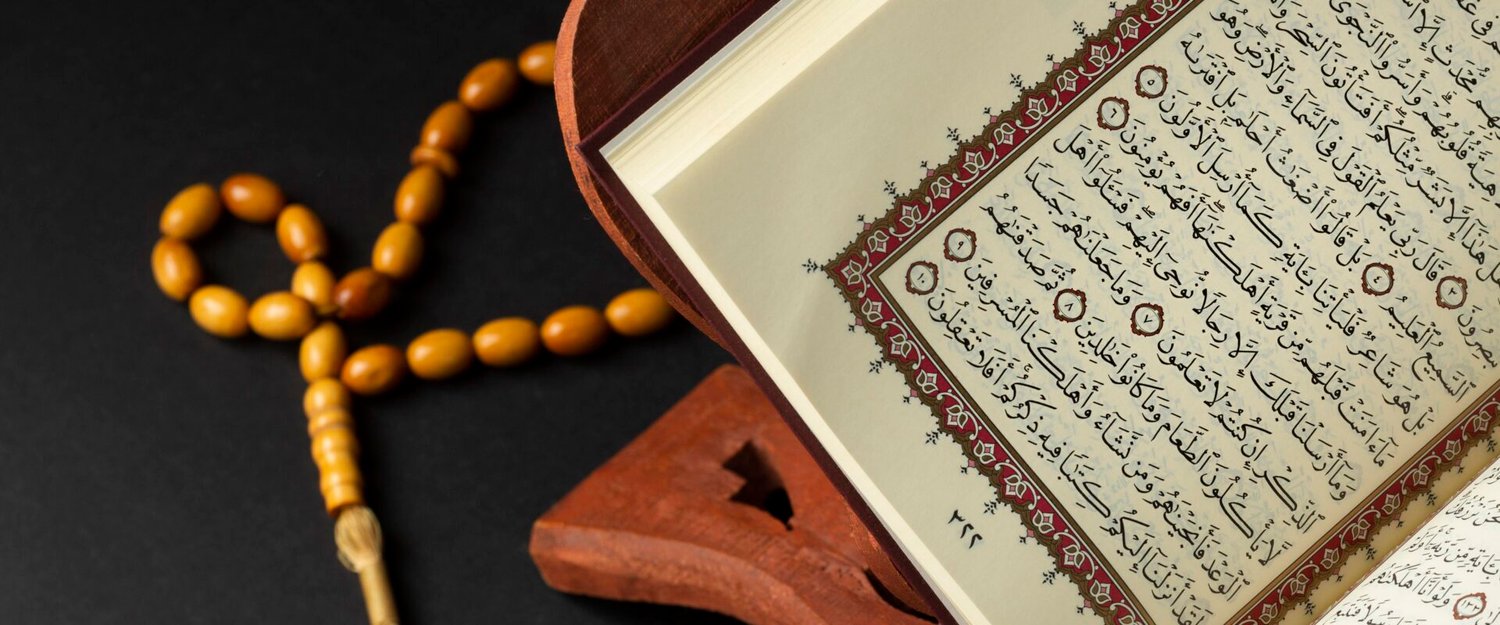 مُّحْدَثٍ إِلَّا
قُلُوبُهُمْ وَأَسَرُّوا۟ ٱلنَّجْوَى
هَلْ هَٰذَآ إِلَّا بَشَرٌ مِّثْلُكُمْ أَفَتَأْتُونَ ٱلسِّحْرَ
تُبْصِرُونَ ٣ قَالَ رَبِّى يَعْلَمُ ٱلْقَوْلَ فِى ٱلسَّمَآءِ وَٱلْأَرْضِ وَهُوَ
ٱلسَّمِيعُ ٱلْعَلِيمُ ٤ بَلْ قَالُوٓا۟ أَضْغَٰثُ أَحْلَٰمٍۭ بَلِ ٱفْتَرَىٰهُ
بَلْ هُوَ شَاعِرٌ فَلْيَأْتِنَا بِـَٔايَةٍ كَمَآ أُرْسِلَ ٱلْأَوَّلُونَ ٥
مَآ ءَامَنَتْ قَبْلَهُم مِّن قَرْيَةٍ أَهْلَكْنَٰهَآ أَفَهُمْ يُؤْمِنُونَ ٦
وَمَآ أَرْسَلْنَا قَبْلَكَ إِلَّا رِجَالًا نُّوحِىٓ إِلَيْهِمْ فَسْـَٔلُوٓا۟ أَهْلَ
ٱلذِّكْرِ إِن كُنتُمْ لَا تَعْلَمُونَ ٧ وَمَا جَعَلْنَٰهُمْ جَسَدًا
لَّا يَأْكُلُونَ ٱلطَّعَامَ وَمَا كَانُوا۟ خَٰلِدِينَ ٨ ثُمَّ صَدَقْنَٰهُمُ
ٱلْوَعْدَ فَأَنجَيْنَٰهُمْ وَمَن نَّشَآءُ وَأَهْلَكْنَا ٱلْمُسْرِفِينَ ٩
لَقَدْ أَنزَلْنَآ إِلَيْكُمْ كِتَٰبًا فِيهِ ذِكْرُكُمْ أَفَلَا تَعْقِلُونَ ١٠
٣٢٢
بِـَٔايَةٍ مِّن رَّبِّهِۦٓ
١٣٣ وَلَوْ أَنَّآ أَهْلَكْنَٰهُم